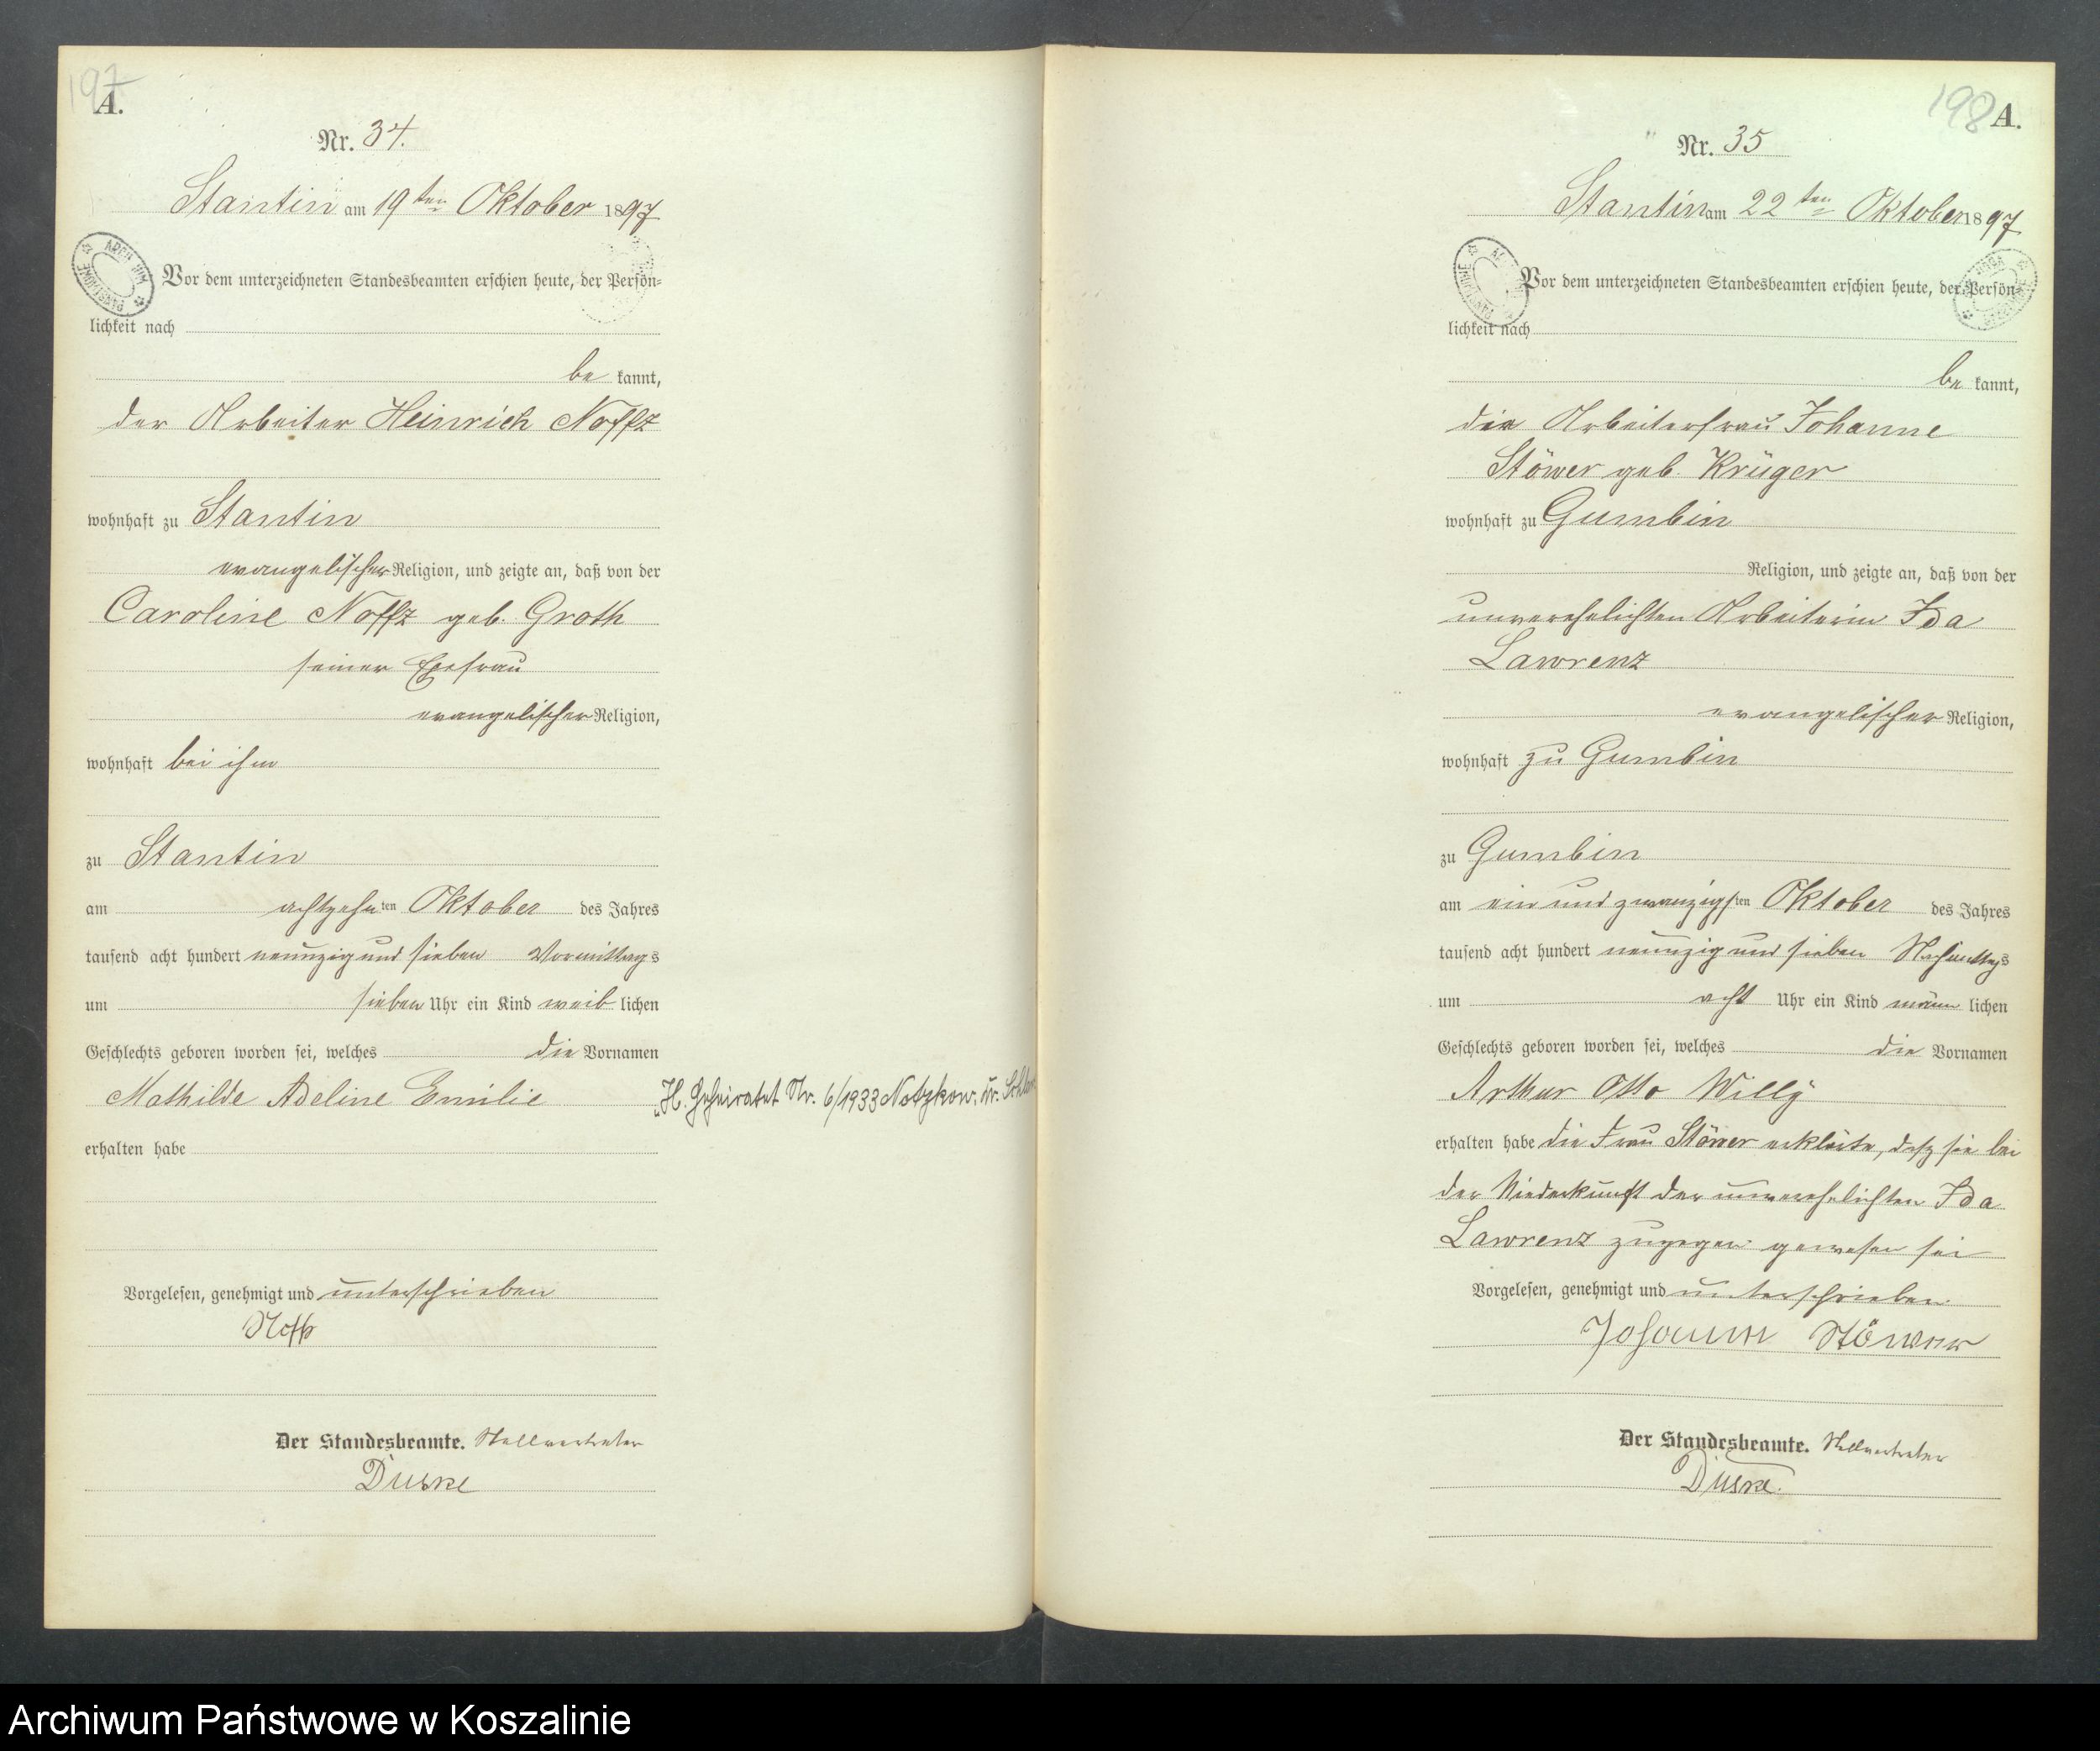 197
A.
Nr. 34.
Stantin am 19ten Oktober 1897
Vor dem unterzeichneten Standesbeamten erschien heute, der Persön-
lichkeit nach
be kannt,
der Arbeiter Heinrich Noffz
wohnhaft zu Stantin
evangelischer Religion, und zeigte an, daß von der
Caroline Noffz geb. Groth
seiner Ehefrau
evangelischer Religion,
wohnhaft bei ihm
zu Stantin
am achtzehnten Oktober des Jahres
tausend acht hundert neunzig und sieben Vormittags
um sieben Uhr ein Kind weib lichen
Geschlechts geboren worden sei, welches die Vornamen
Mathilde Adeline Emilie
erhalten habe
Vorgelesen, genehmigt und unterschrieben
Noffz
Der Standesbeamte. Stellvertreter
Duske
H. Geheiratet Nr. 6/1933 Notzkow, Kr.
198
A.
Nr. 35
Stantin am 22ten Oktober 1897
Vor dem unterzeichneten Standesbeamten erschien heute, der Persön-
lichkeit nach
be kannt,
die Arbeiterfrau Johanne
Stöwer geb. Krüger
wohnhaft zu Gumbin
Religion, und zeigte an, daß von der
unverehelichten Arbeiterin Ida
Lawrenz
evangelischer Religion,
wohnhaft zu Gumbin
zu Gumbin
am ein und zwanzigsten Oktober des Jahres
tausend acht hundert neunzig und sieben Nachmittags
um acht Uhr ein Kind männ lichen
Geschlechts geboren worden sei, welches die Vornamen
Arthur Otto Willy
erhalten habe die Frau Stöwer erklärte, daß sie bei
der Niederkunft der unverehelichten Ida
Lawrenz zugegen gewesen sei
Vorgelesen, genehmigt und unterschrieben
Johanne Stöwer
Der Standesbeamte. Stellvertreter
Duske.
Archiwum Państwowe w Koszalinie